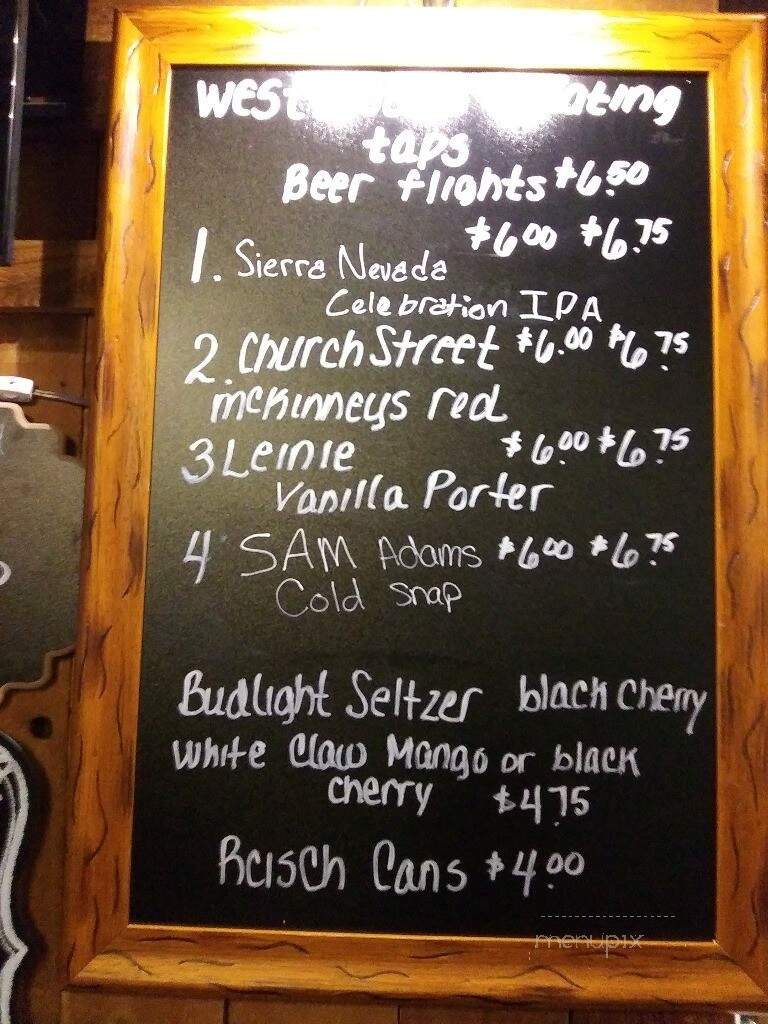 WEST
taps
Beer flights $6.50
$6.00 $6.75
1. Sierra Nevada
Celebration IPA
2. Church Street $6.00 $6.75
mckinneys red
3 Leinie $6.00 $6.75
Vanilla Porter
4 SAM Adams $6.00 $6.75
Cold snap
Budlight Seltzer black cherry
white Claw Mango or black
cherry $4.75
Reisch Cans $4.00
menupix